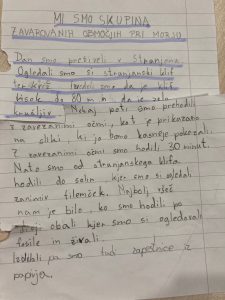 MI SMO SKUPINA
ZAVAROVANIH OBMOČJIH PRI MORJU
Dan smo preživeli v Strunjanu.
Ogledali smo si strunjanski klif
ter križ. Izvedeli smo da je klif
visok do 80 m m, da je zelo
krušljiv. Nekaj poti smo prehodili
z zavezanimi očmi, kot je prikazano
na sliki, ki jo bomo kasneje pokazali.
Z zavezanimi očmi smo hodili 30 minut.
Nato smo od strunjanskega klifa
hodili do solin kjer smo si ogledali
zanimiv filemček. Najbolj všeč
nam je bilo, ko smo hodili po
obali kjer smo si ogledovali
fosile in živali.
Izdelali pa smo tud zapestnice iz
papirja.